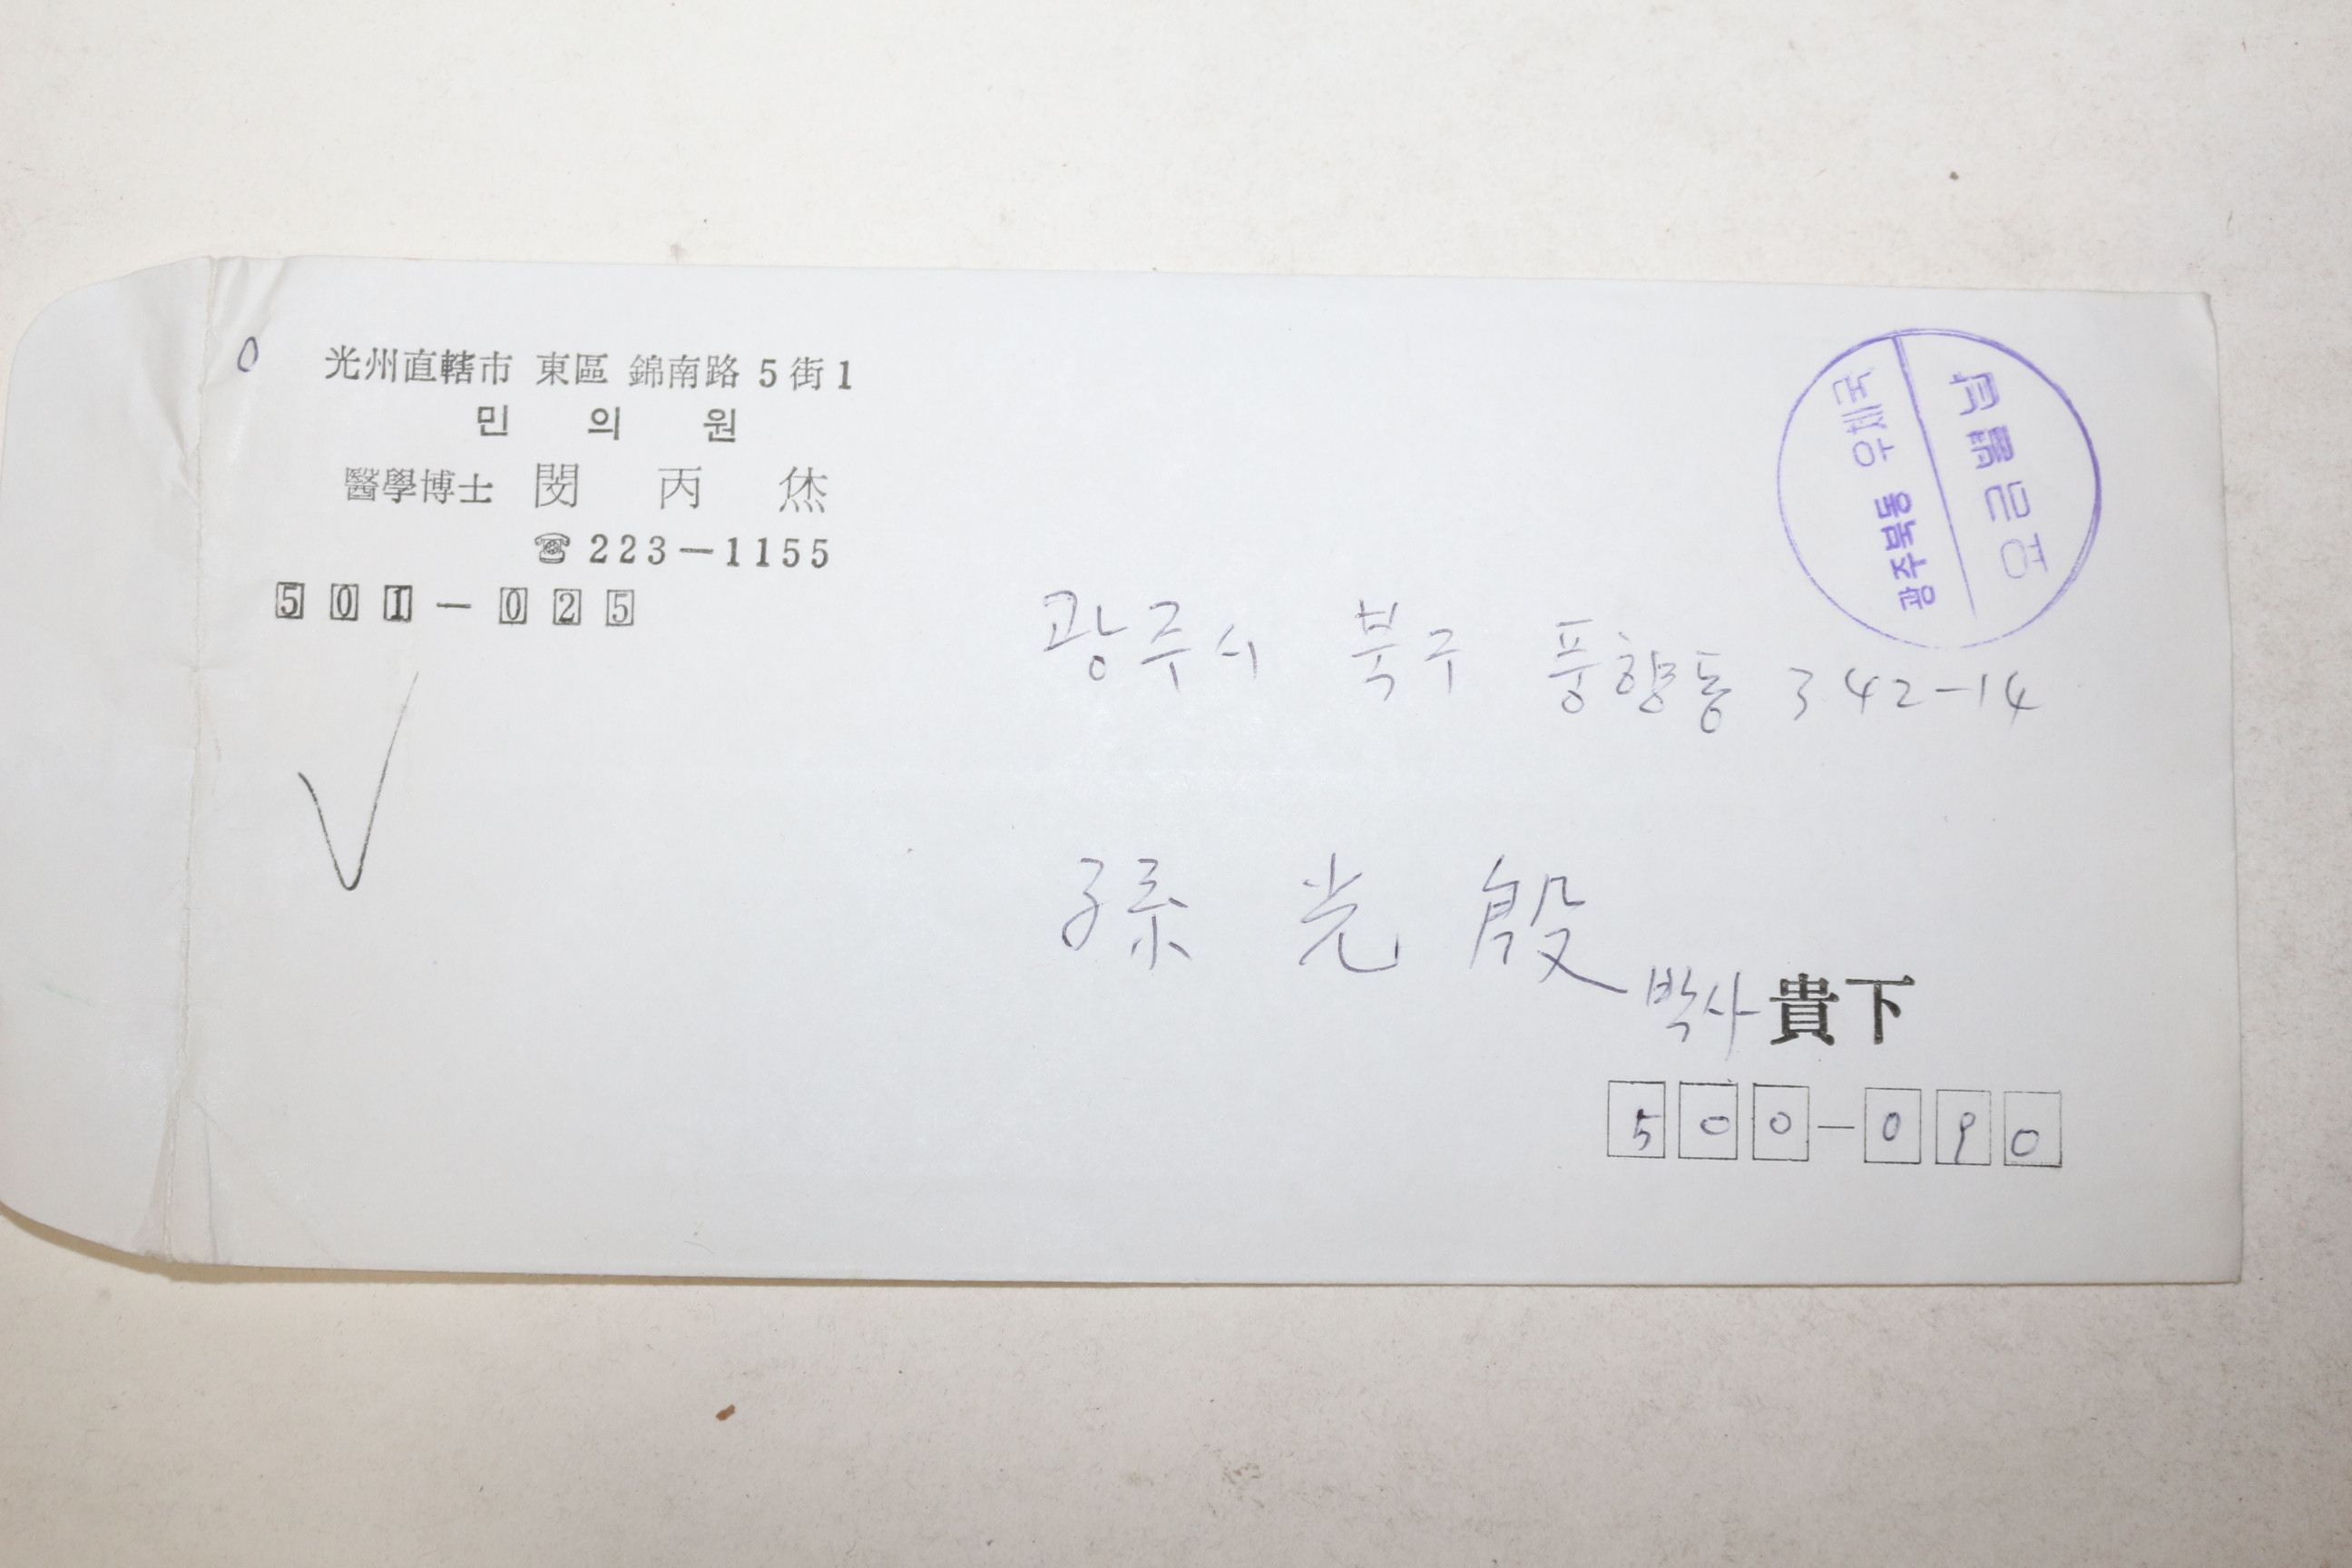 光州直轄市 東區 錦南路 5街1
민 의 원
醫學博士 閔 丙 烋
☎ 223-1155
501-025
광주북동 우체국
요금별납
광주시 북구 풍향동 342-14
孫 光 殷 박사 貴下
500-090